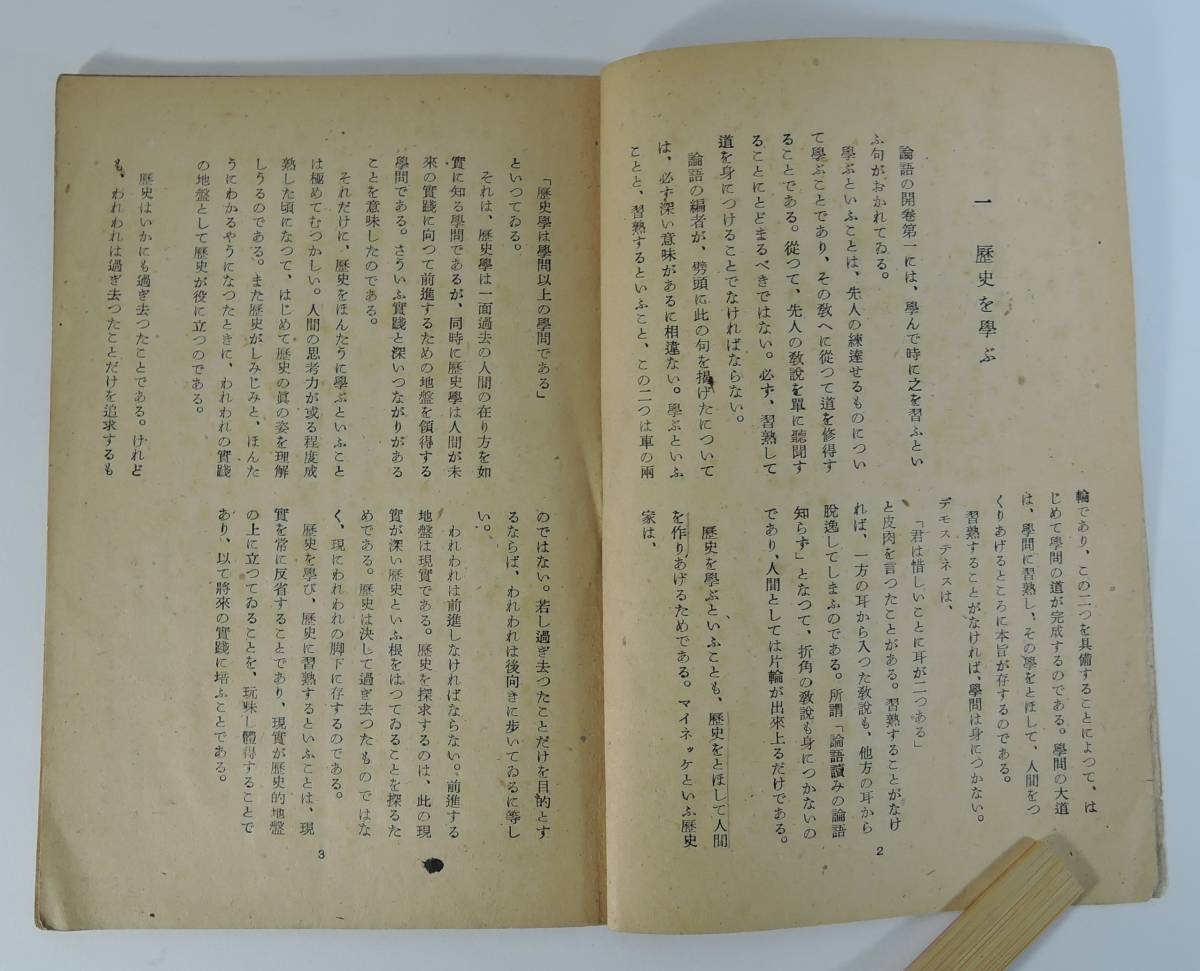 一　歷史を學ぶ
論語の開卷第一には、學んで時に之を習ふとい
ふ句がおかれてゐる。
學ぶといふことは、先人の練達せるものについ
て學ぶことであり、その敎へに從つて道を修得す
ることである。從つて、先人の敎說を單に聽聞す
ることにとどまるべきではない。必ず、習熟して
道を身につけることでなければならない。
論語の編者が、劈頭に此の句を揭げたについて
は、必ず深い意味があるに相違ない。學ぶといふ
ことと、習熟するといふこと、この二つは車の兩
輪であり、この二つを具備することによつて、は
じめて學問の道が完成するのである。學問の大道
は、學問に習熟し、その學をとほして、人間をつ
くりあげるところに本旨が存するのである。
習熟することがなければ、學問は身につかない。
デモステネスは、
「君は惜しいことに耳が二つある」
と皮肉を言つたことがある。習熟することがなけ
れば、一方の耳から入つた敎說も、他方の耳から
脫逸してしまふのである。所謂「論語讀みの論語
知らず」となつて、折角の敎說も身につかないの
であり、人間としては片輪が出來上るだけである。
歷史を學ぶといふことも、歷史をとほして人間
を作りあげるためである。マイネッケといふ歷史
家は、
2
「歷史學は學問以上の學問である」
といつてゐる。
それは、歷史學は一面過去の人間の在り方を如
實に知る學問であるが、同時に歷史學は人間が未
來の實踐に向つて前進するための地盤を領得する
學問である。さういふ實踐と深いつながりがある
ことを意味したのである。
それだけに、歷史をほんたうに學ぶといふこと
は極めてむつかしい。人間の思考力が或る程度成
熟した頃になつて、はじめて歷史の眞の姿を理解
しうるのである。また歷史がしみじみと、ほんた
うにわかるやうになつたときに、われわれの實踐
の地盤として歷史が役に立つのである。
歷史はいかにも過ぎ去つたことである。けれど
も、われわれは過ぎ去つたことだけを追求するも
のではない。若し過ぎ去つたことだけを目的とす
るならば、われわれは後向きに步いてゐるに等し
い。
われわれは前進しなければならない。前進する
地盤は現實である。歷史を探求するのは、此の現
實が深い歷史といふ根をはつてゐることを探るた
めである。歷史は決して過ぎ去つたものではな
く、現にわれわれの脚下に存するのである。
歷史を學び、歷史に習熟するといふことは、現
實を常に反省することであり、現實が歷史的地盤
の上に立つてゐることを、玩味し體得することで
あり、以て將來の實踐に培ふことである。
3